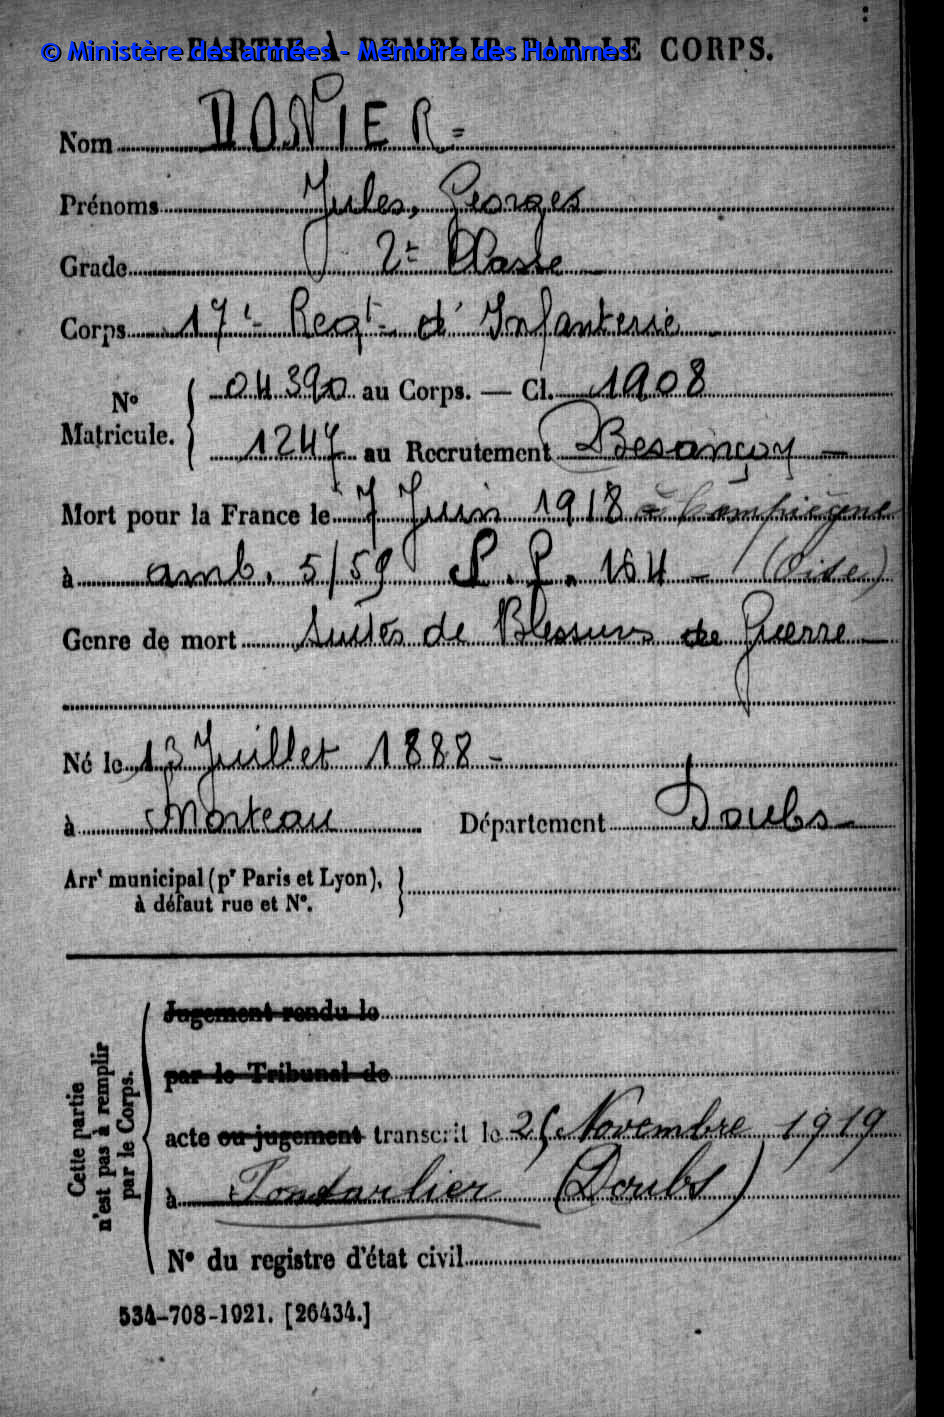 © Ministère des armées - Mémoire des Hommes
PARTIE À REMPLIR PAR LE CORPS.
Nom DONIER =
Prénoms Jules, Georges
Grade 2e Classe
Corps 17e Regt d'Infanterie
No
Matricule.
04390 au Corps. — Cl. 1908
1247 au Recrutement Besançon
Mort pour la France le 7 Juin 1918 à Compiègne
à amb. 5/59 S.P. 164 - (Oise)
Genre de mort Suites de Blessures de Guerre
Né le 13 Juillet 1888
à Morteau Département Doubs
Arrt municipal (pr Paris et Lyon),
à défaut rue et No.
Cette partie
n'est pas à remplir
par le Corps.
Jugement rendu le
par le Tribunal de
acte ou jugement transcrit le 25 Novembre 1919
à Pontarlier (Doubs)
No du registre d'état civil
534-708-1921. [26434.]